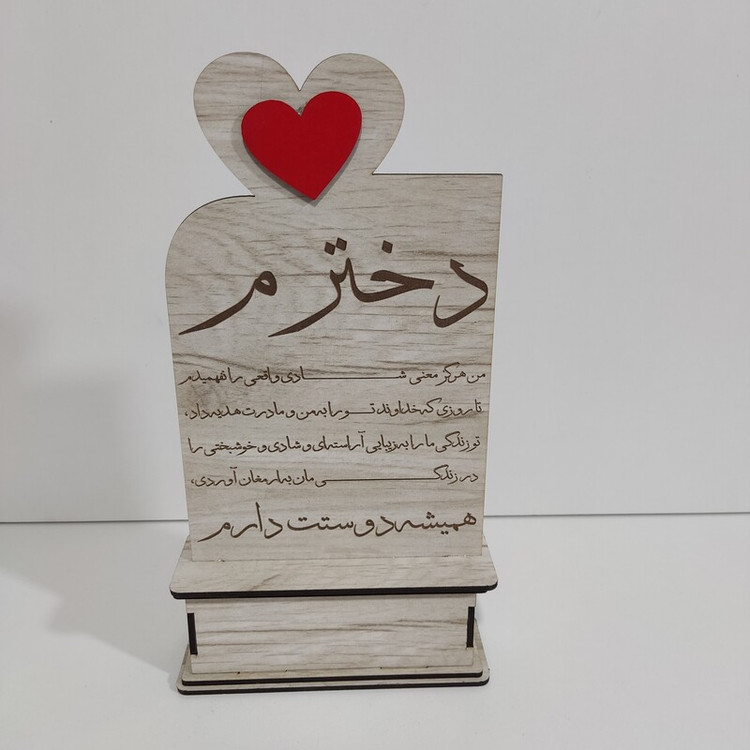 دخترم
من هرگز معنی شادی واقعی را نفهمیدم
تا روزی که خداوند تو را به من و مادرت هدیه داد،
تو زندگی ما را به زیبایی آراسته‌ای و شادی و خوشبختی را
در زندگی مان به ارمغان آوردی،
همیشه دوستت دارم